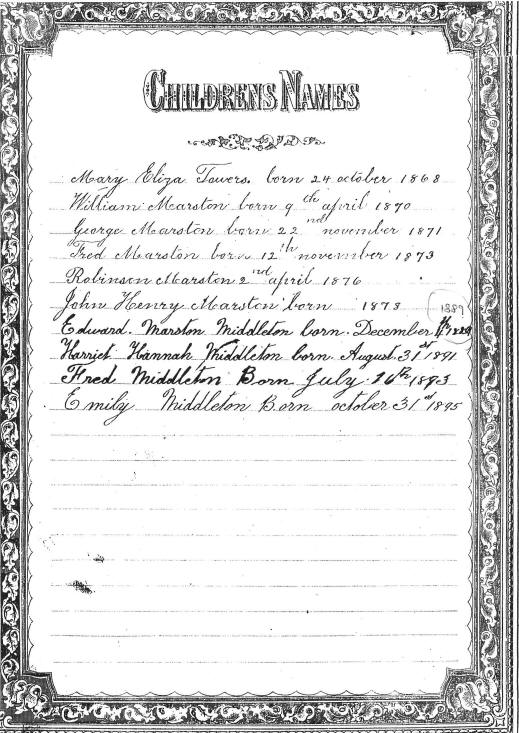 CHILDRENS NAMES
Mary Eliza Towers. born 24 october 1868
William Marston born 9th april 1870
George Marston born 22nd november 1871
Fred Marston born 12th november 1873
Robinson Marston 2nd april 1876
John Henry Marston born 1878
1889
Edward. Marston Middleton born. December
Harriet Hannah Middleton born. August. 31st 1891
Fred Middleton Born July 16th 1893
Emily Middleton Born october 31st 1895